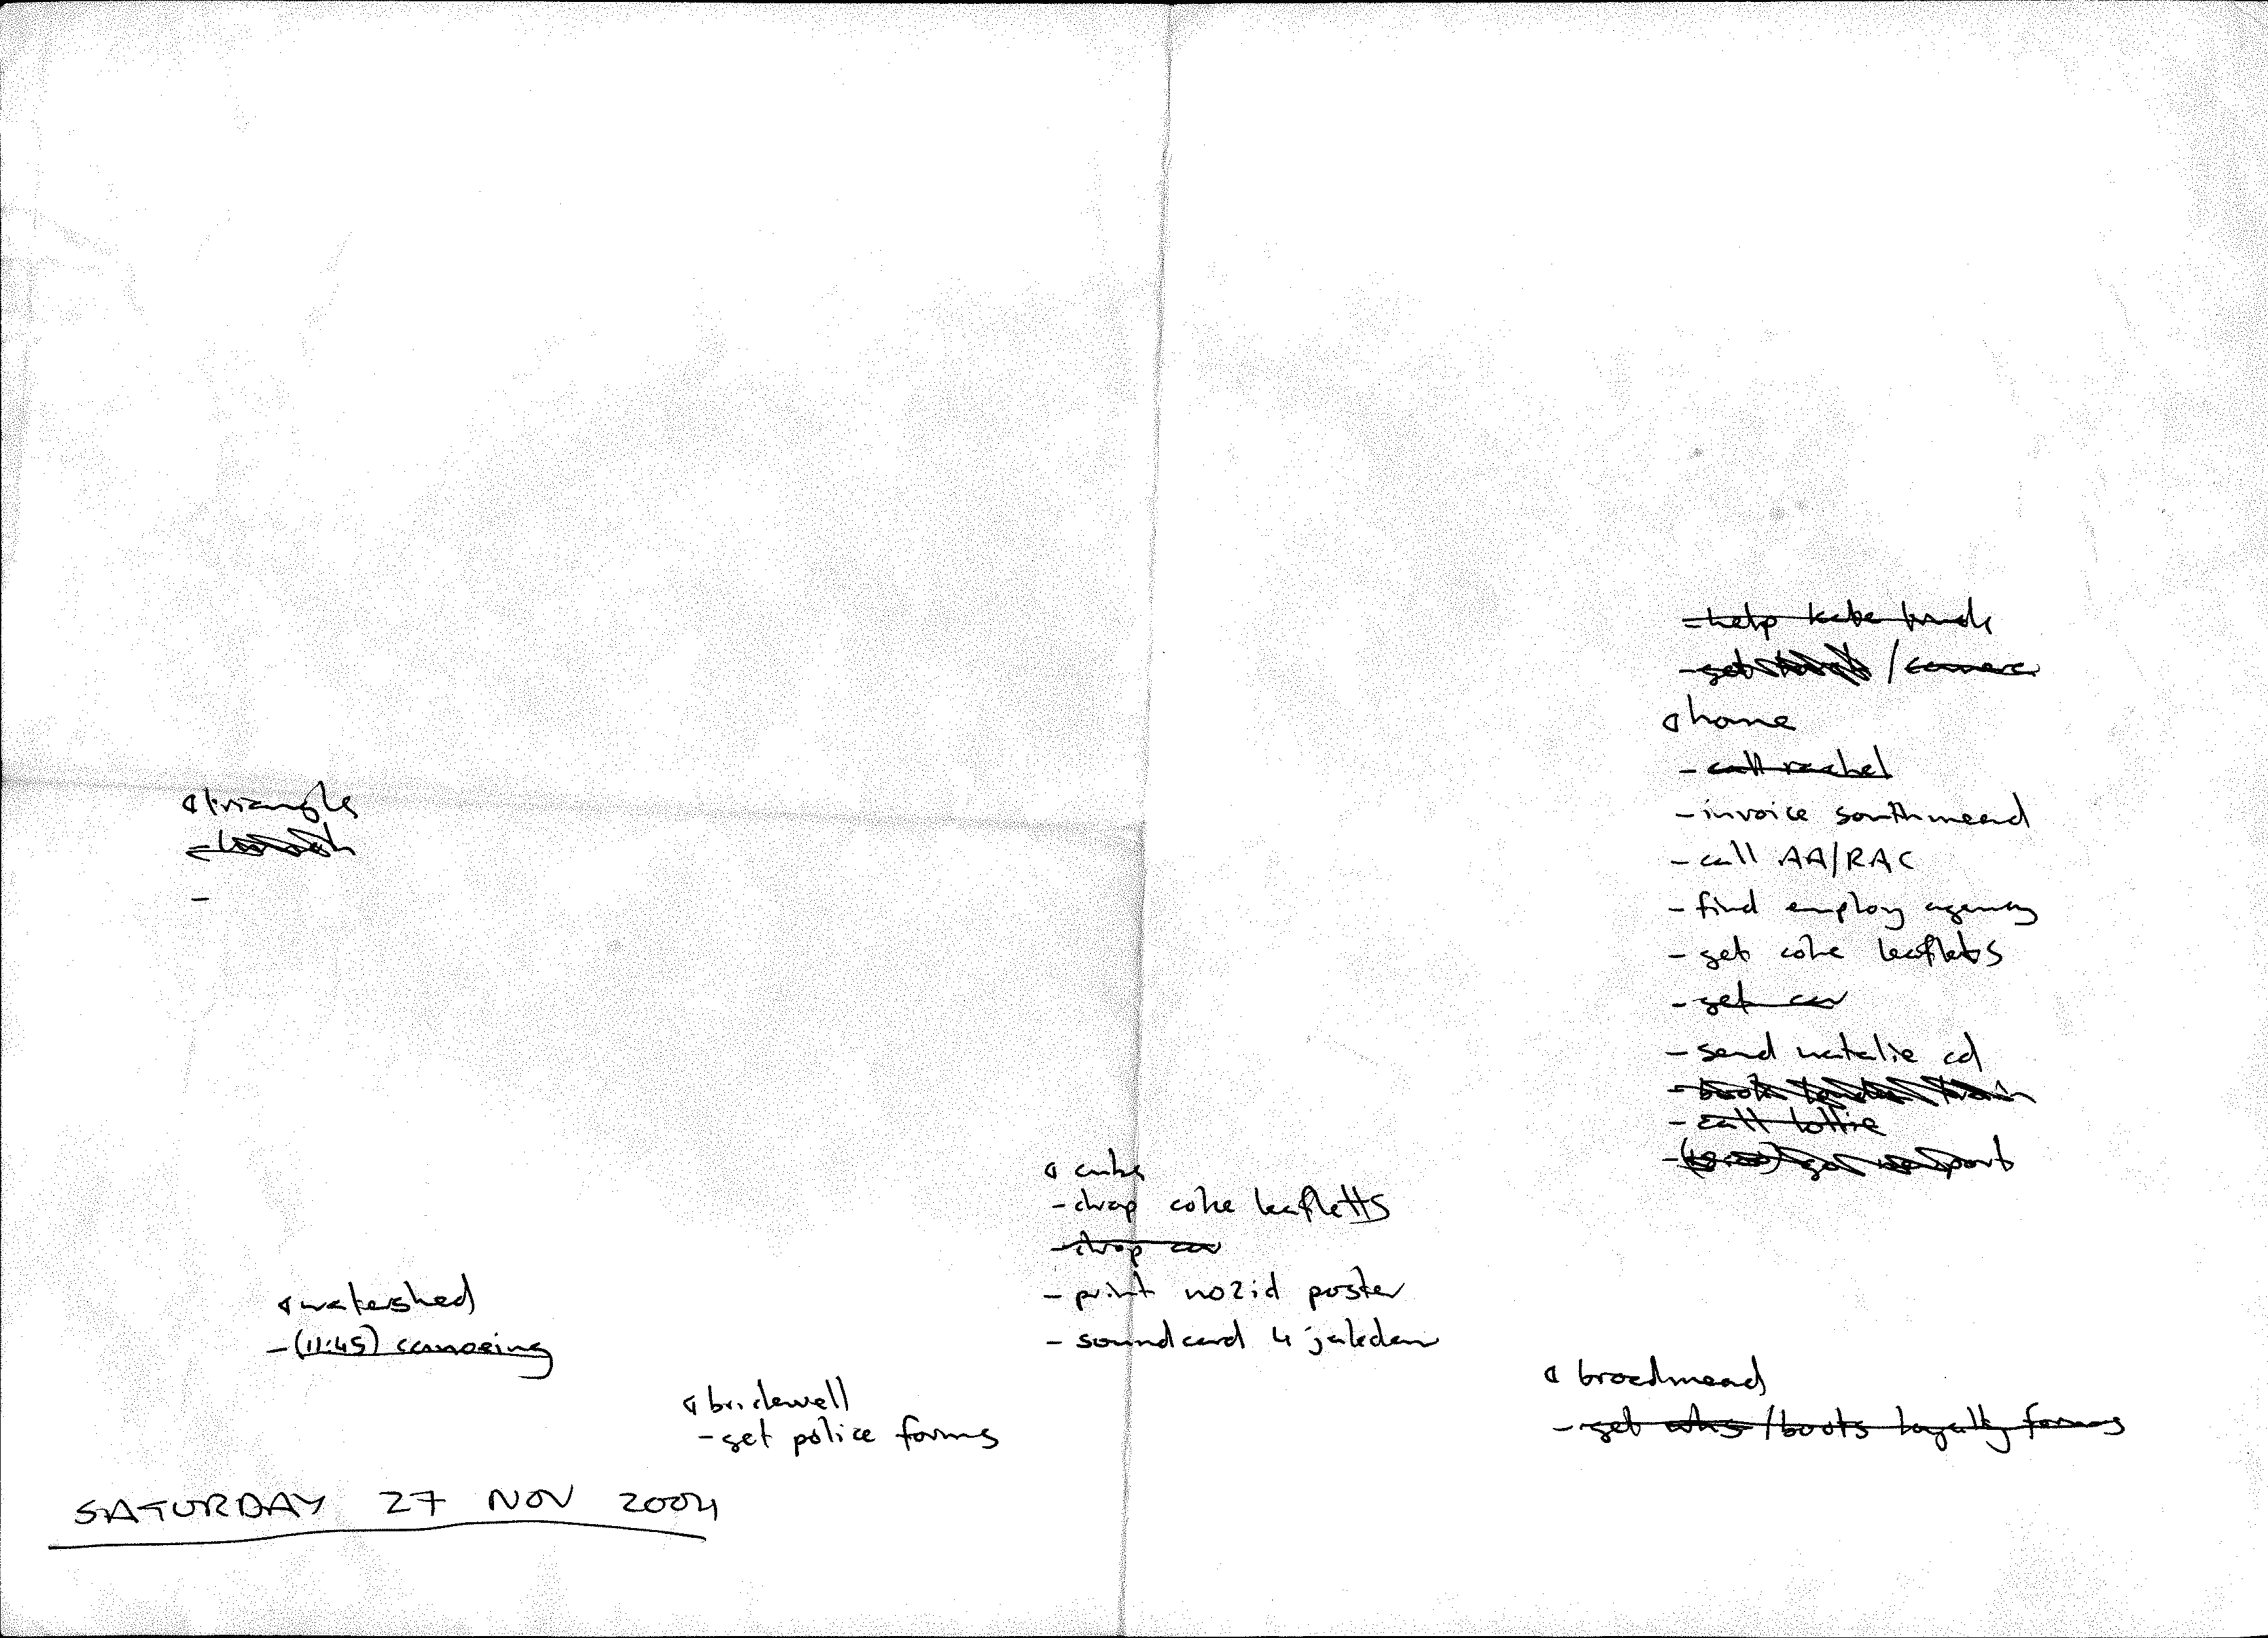 triangle
-
watershed
- (11:45) canoeing
bridewell
- get police forms
SATURDAY 27 NOV 2004
cube
- drop coke leafletts
- drop car
- print no2id poster
- soundcard 4 jakedan
- help kate
- get / camera
home
- call rachel
- invoice southmead
- call AA/RAC
- find employ agency
- get coke leaflets
- get car
- send natalie cd
- book train
- call lottie
- get
broadmead
- get whs / boots loyalty forms